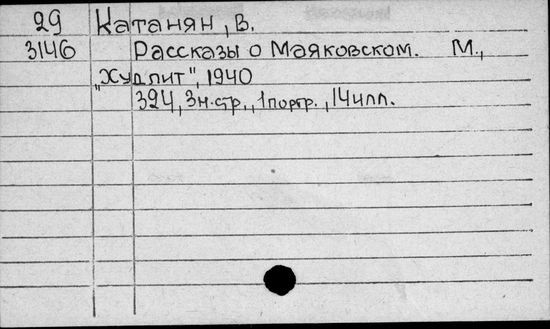 29 Катанян, В.
3146 Рассказы о Маяковском. М.,
"Худлит", 1940
324, 3н.стр., 1портр., 14илл.